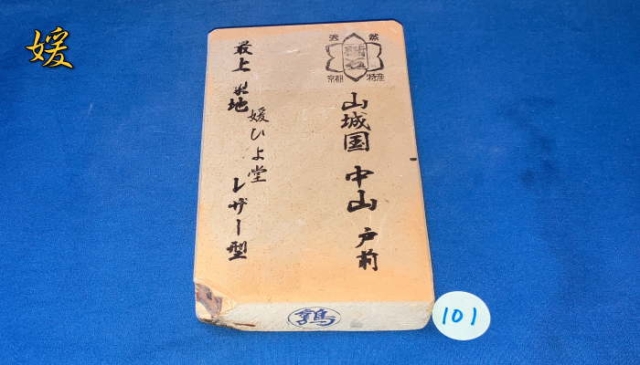 媛
天然
京都
特産
山城国 中山 戸前
最上 水地
媛ひよ堂
レザー型
101